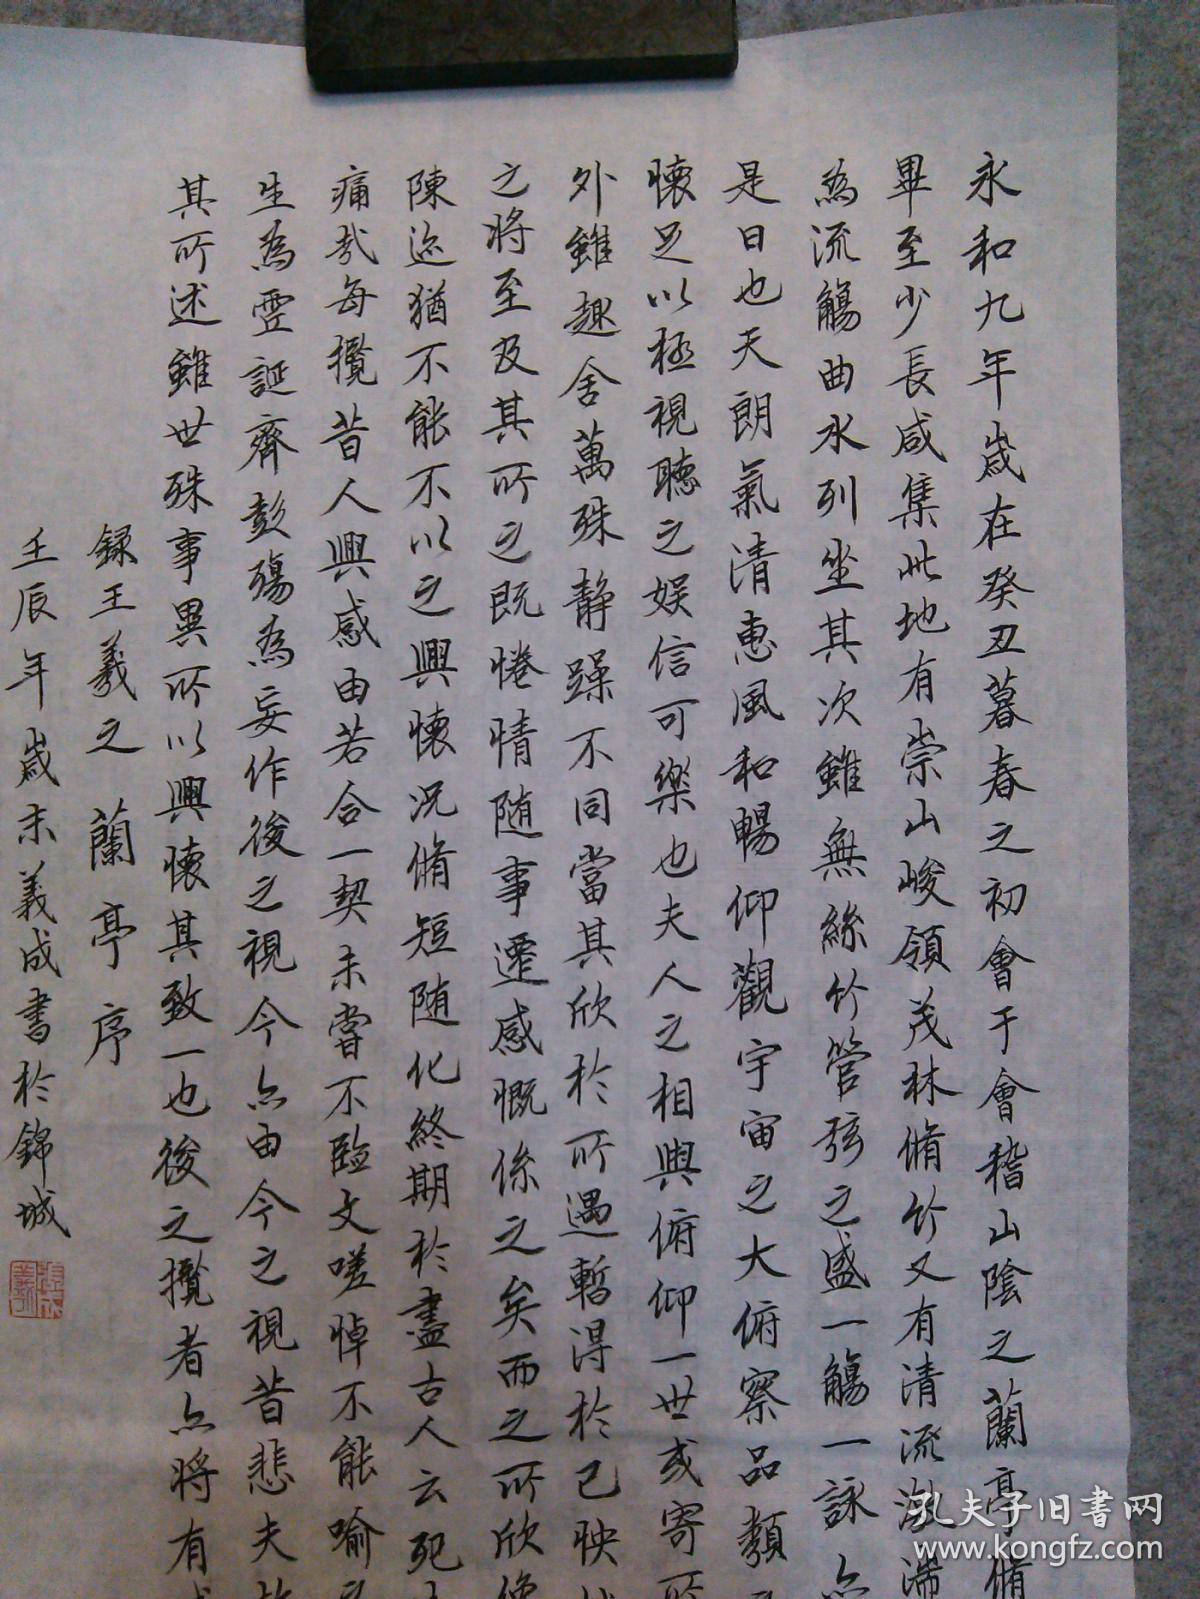 永和九年歲在癸丑暮春之初會于會稽山陰之蘭亭脩
畢至少長咸集此地有崇山峻領茂林脩竹又有清流激湍
為流觴曲水列坐其次雖無絲竹管弦之盛一觴一詠亦
是日也天朗氣清惠風和暢仰觀宇宙之大俯察品類
懷足以極視聽之娱信可樂也夫人之相與俯仰一世或寄所
外雖趣舍萬殊靜躁不同當其欣於所遇暫得於己怏
之將至及其所之既惓情随事遷感慨係之矣而之所欣
陳迹猶不能不以之興懷況脩短随化終期於盡古人云死
痛哉每攬昔人興感由若合一契未嘗不臨文嗟悼不能喻
生為虛誕齊彭殤為妄作後之視今亦由今之視昔悲夫
其所述雖世殊事異所以興懷其致一也後之攬者亦將有
録王羲之 蘭亭序
壬辰年歲末義成書於錦城
孔夫子旧書网
www.kongfz.com